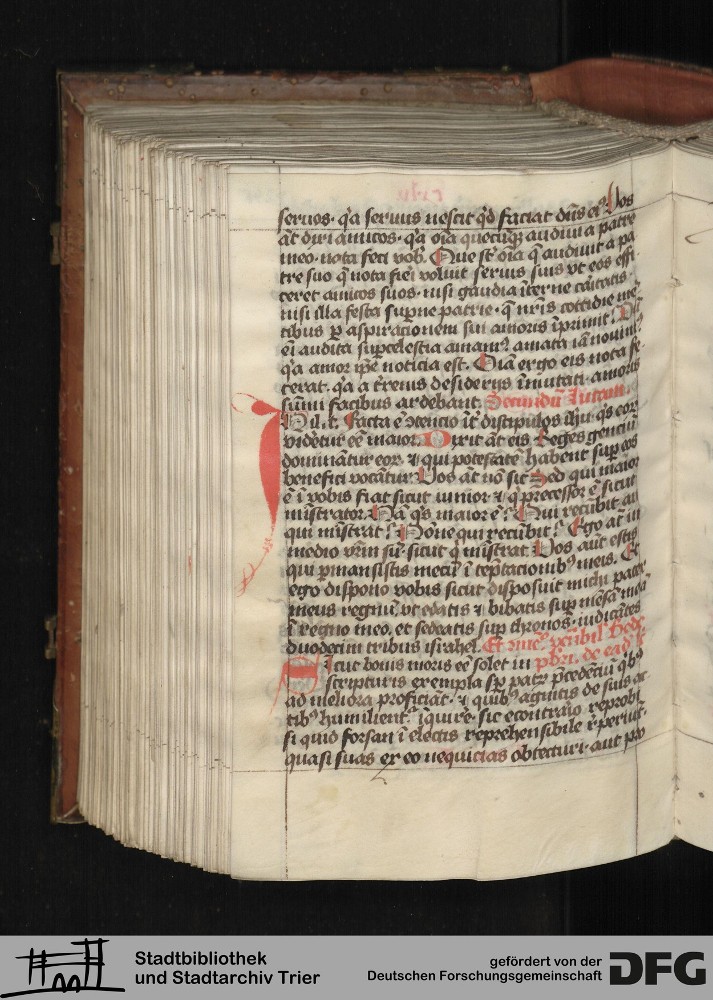 seruos. q'a seruus nescit q̇d faciat dn̄s ei'. Uos
aūt dixi amicos. q'a oīa quecūq3 audiui a patre
meo. nota feci vob̄. Que sūt oīa q̄ audiuit a pa
tre suo q̄ nota fieri voluit seruis suis vt eos effi
ceret amicos suos. nisi gaudia īterne caritatis.
nisi illa festa sup̄ne patrie. q̄ nr̄is cottidie mē
tibus p aspiracionem sui amoris īprimit. Dū
em̄ audita sup̄celestia amam'. amata iā nouim'.
q'a amor ip̄e noticia est. Oīa ergo eis nota fe
cerat. q'a a t'renis desiderijs īmutati. amoris
sūmi facibus ardebant. Secundū lucam.
In il. t. Facta ē ɔtencio īt' discipulos ihū. q's eor̄
videretur eē maior. Dixit āt eis Reges genciū
dominātur eor̄. & qui potestatē habent sup eos
benefici vocātur. Uos āt nō sic Sed qui maior
ē ī vobis fiat sicut iunior & q' precessor ē sicut
mīstrator. Nā q's maior ē? Qui recūbit an
qui mīstrat? Nōne qui recūbit? Ego āt in
medio vr̄m sū. sicut q' mīstrat. Uos aūt estis
qui p̄mansistis mecū ī teptacionib9 meis. Et
ego dispono vobis sicut disposuit michi pater
meus regnū. vt edatis & bibatis sup mēsā meā
ī regno meo. et sedeatis sup thronos. iudicātes
duodecim tribus israhel. Et īme'. vēn̄bil' Bede
Sicut bonis moris eē solet in pbr̄i. de ead' l'
scripturis exempla sp̄ patr̄ p̄cedēciū q'b9
ad meliora proficiāt. & quib9 agnitis de suis ac
tib9 humilient' īquire. sic econtrario reprobi
si quid forsan ī electis reprehensibile rep̄eriūt.
quasi suas ex eo nequicias obtecturi. aut pro
Stadtbibliothek
und Stadtarchiv Trier
gefördert von der
Deutschen Forschungsgemeinschaft
DFG